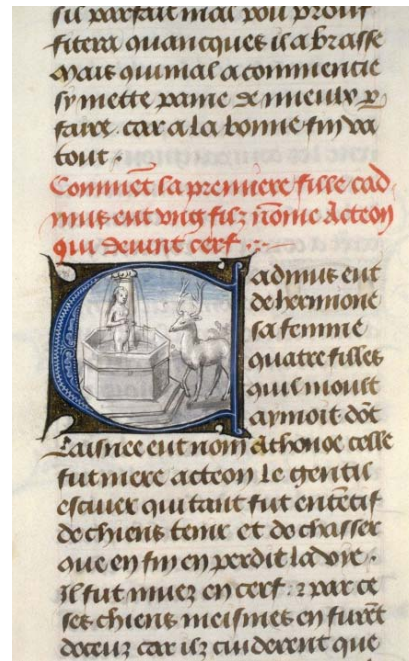 sil parfait mal pou prouf
fitera quancques il a brasse
Mais qui mal a commencie
sy mette paine de mieulx p
faire. car a la bonne fin va
tout.
Commēt la premiere fille cad
mus eut vng filz nōme Acteon
qui deuint cerf.
Cadmus eut
de hermione
sa femme
quatre filles
quil moult
aymoit dōt
Laisnee eut nom Athonoe celle
fut mere acteon le gentil
escuier qui tant fut entētif
de chiens tenir et de chasser
que en fin en perdit la vie.
Il fut muez en cerf. ⁊ par ce
ses chiens meismes en furēt
car ilz cuiderent que